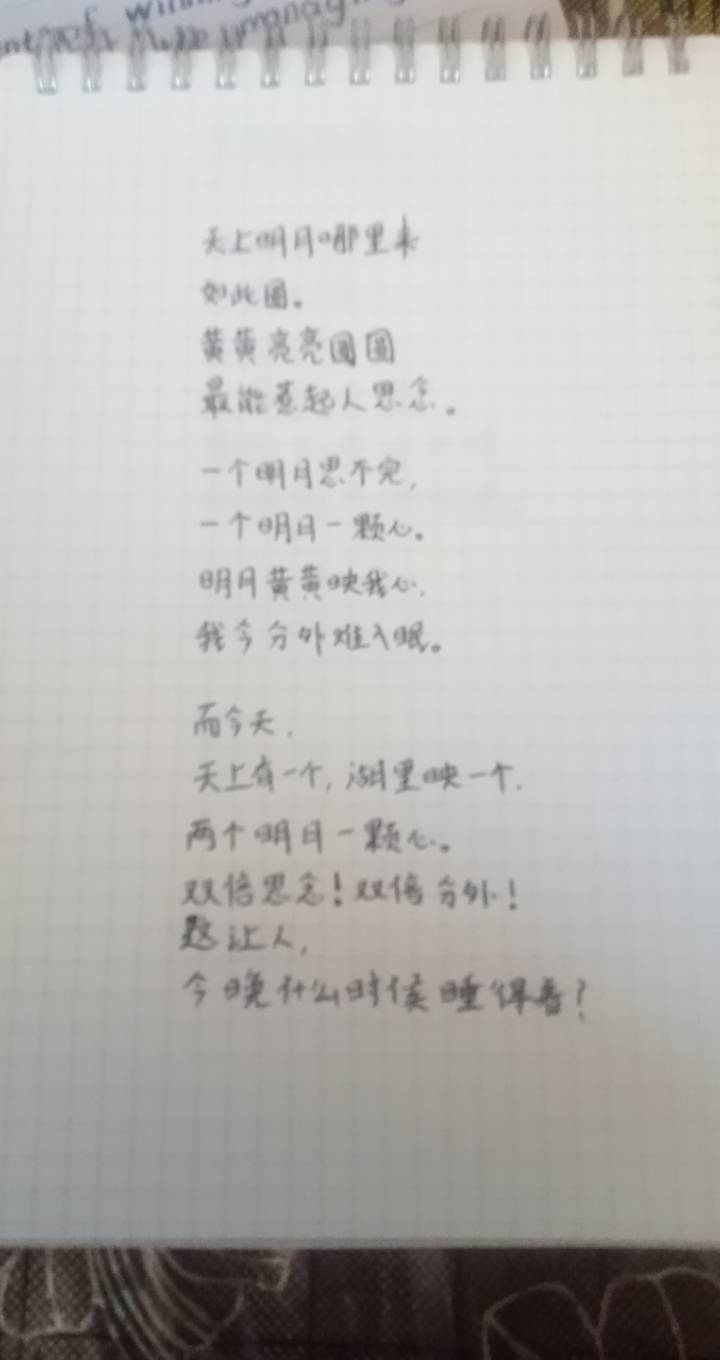 winn
managi
天上明月哪里来
如此圆。
黄黄亮亮圆圆
最能惹起人思念。
一个明月思不完,
一个明月一颗心。
明月黄黄映我心,
我今分外难入眠。
而今天,
天上有一个, 湖里映一个.
两个明月一颗心。
双倍思念! 双倍分外!
让人,
今晚什么时候睡得着?